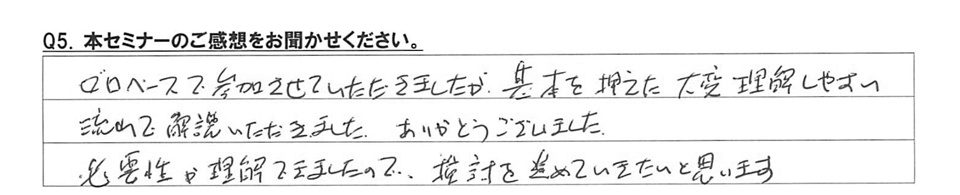 Q5. 本セミナーのご感想をお聞かせください。
ゼロベースで参加させていただきましたが、基本を押えた大変理解しやすい
流れで解説いただきました。ありがとうございました。
必要性が理解できましたので、検討を進めていきたいと思います